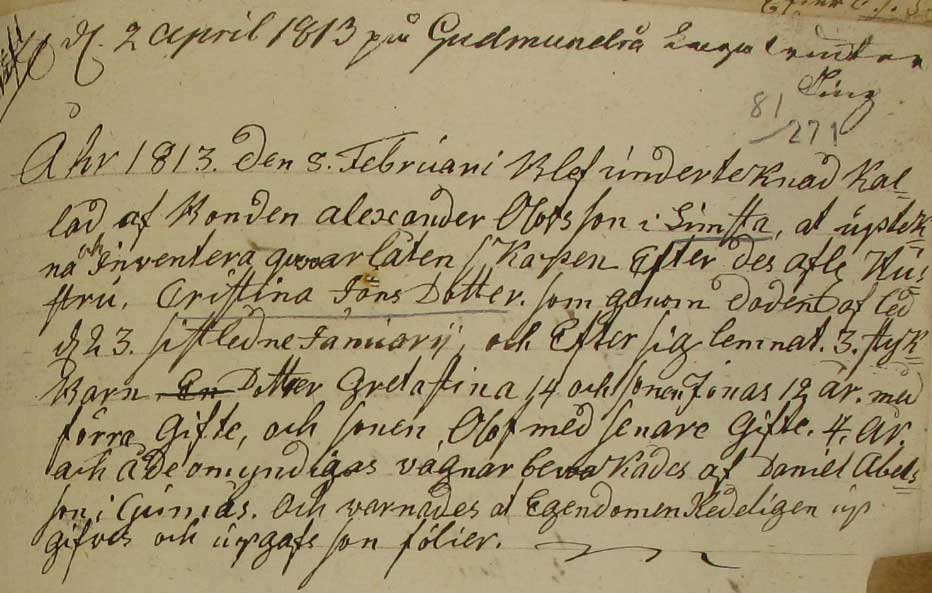 d. 2 april 1813 på Gudmundrå Laga winter
Ting
81
271
Åhr 1813. den 8. Februari Blef underteknad kal-
lad af Bonden alexander Olofsson i Simsta, at uptek-
na och inventera quarlåten skapen Efter des afle. Hus-
stru, Cristina Jons Dotter. som genom döden af led
d. 23. sistledne Januarij, och Efter sig lemnat. 3. styk
Barn En Dotter Greta stina 14 och sonen Jonas 12 år. med
förra Gifte, och sonen Olof med senare Gifte. 4. år.
och å de omyndigas vagnar bevakades af Daniel Abels-
son i Gumås. och varnades at Egendomen Redeligen up
gifves och upgafs som fölier.